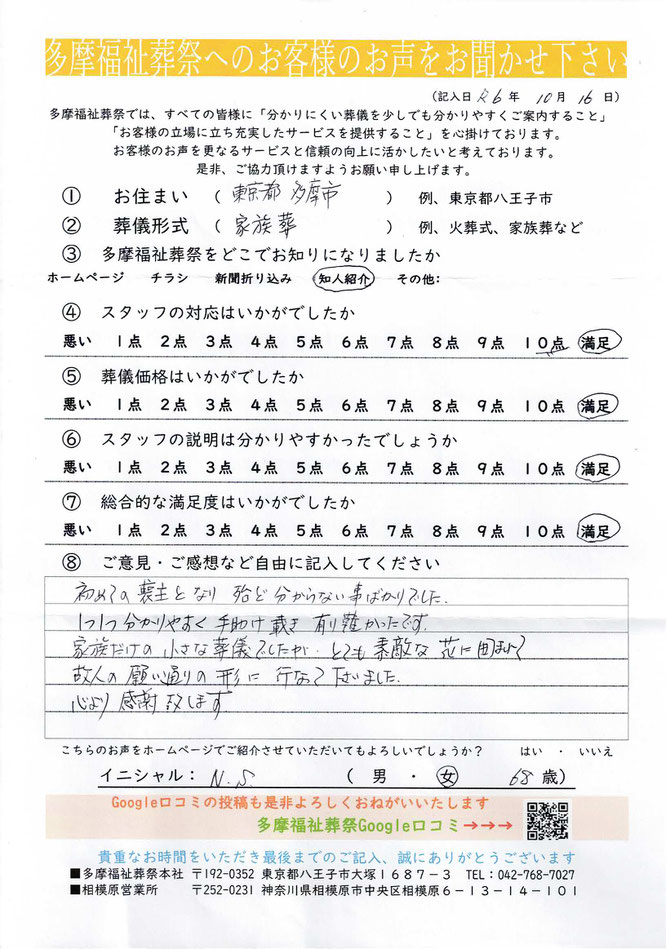 多摩福祉葬祭へのお客様のお声をお聞かせ下さい
(記入日 R6 年 10 月 16 日)
多摩福祉葬祭では、すべての皆様に「分かりにくい葬儀を少しでも分かりやすくご案内すること」
「お客様の立場に立ち充実したサービスを提供すること」を心掛けております。
お客様のお声を更なるサービスと信頼の向上に活かしたいと考えております。
是非、ご協力頂けますようお願い申し上げます。
① お住まい (東京都 多摩市) 例、東京都八王子市
② 葬儀形式 (家族葬) 例、火葬式、家族葬など
③ 多摩福祉葬祭をどこでお知りになりましたか
ホームページ チラシ 新聞折り込み 知人紹介 その他:
④ スタッフの対応はいかがでしたか
悪い 1点 2点 3点 4点 5点 6点 7点 8点 9点 10点 満足
⑤ 葬儀価格はいかがでしたか
悪い 1点 2点 3点 4点 5点 6点 7点 8点 9点 10点 満足
⑥ スタッフの説明は分かりやすかったでしょうか
悪い 1点 2点 3点 4点 5点 6点 7点 8点 9点 10点 満足
⑦ 総合的な満足度はいかがでしたか
悪い 1点 2点 3点 4点 5点 6点 7点 8点 9点 10点 満足
⑧ ご意見・ご感想など自由に記入してください
初めての喪主となり 殆ど分からない事ばかりでした.
1つ1つ分かりやすく手助け戴き 有り難かったです.
家族だけの小さな葬儀でしたが、とても素敵な花に囲まれて
故人の願い通りの形に行なって下さいました.
心より感謝致します
こちらのお声をホームページでご紹介させていただいてもよろしいでしょうか? はい ・ いいえ
イニシャル: N.S. (男 ・ 女 68歳)
Google口コミの投稿も是非よろしくおねがいいたします
多摩福祉葬祭Google口コミ→→→
貴重なお時間をいただき最後までのご記入、誠にありがとうございます
■多摩福祉葬祭本社 〒192-0352 東京都八王子市大塚1687-3 TEL:042-768-7027
■相模原営業所 〒252-0231 神奈川県相模原市中央区相模原6-13-14-101